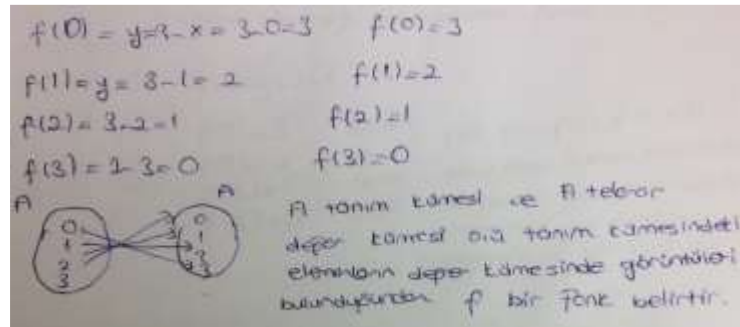 f(0) = y=3-x = 3-0=3 f(0)=3
f(1)=y= 3-1= 2 f(1)=2
f(2)= 3-2=1 f(2)=1
f(3) = 3-3=0 f(3)=0
A A
0 0
1 1
2 2
3 3
A tanım kümesi ve A tekrar
değer kümesi tanım kümesindeki
elemanların değer kümesinde görüntüleri
bulunduğundan f bir fonk belirtir.